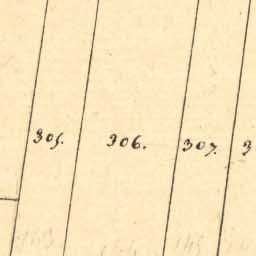 305. 306. 307. 3